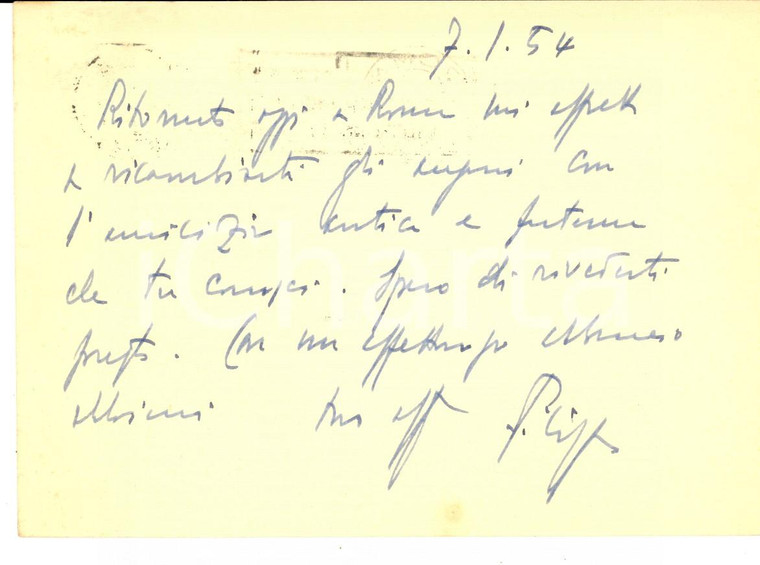 7.1.54
Ritornato oggi a Roma mi affretto
a ricambiarti gli auguri con
l'amicizia antica e fraterna
che tu conosci. Spero di rivederti
presto. Con un affettuoso abbraccio
abbimi tuo aff Filippo
iCharta